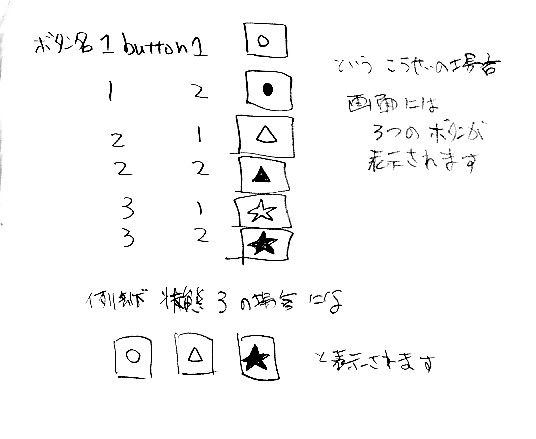 ボタン名1 button1 ○
1 2 ●
2 1 △
2 2 ▲
3 1 ☆
3 2 ★
という こうせいの場合
画面には
3つの ボタンが
表示されます
例えば 状態 3 の場合 には
○ △ ★ と表示されます